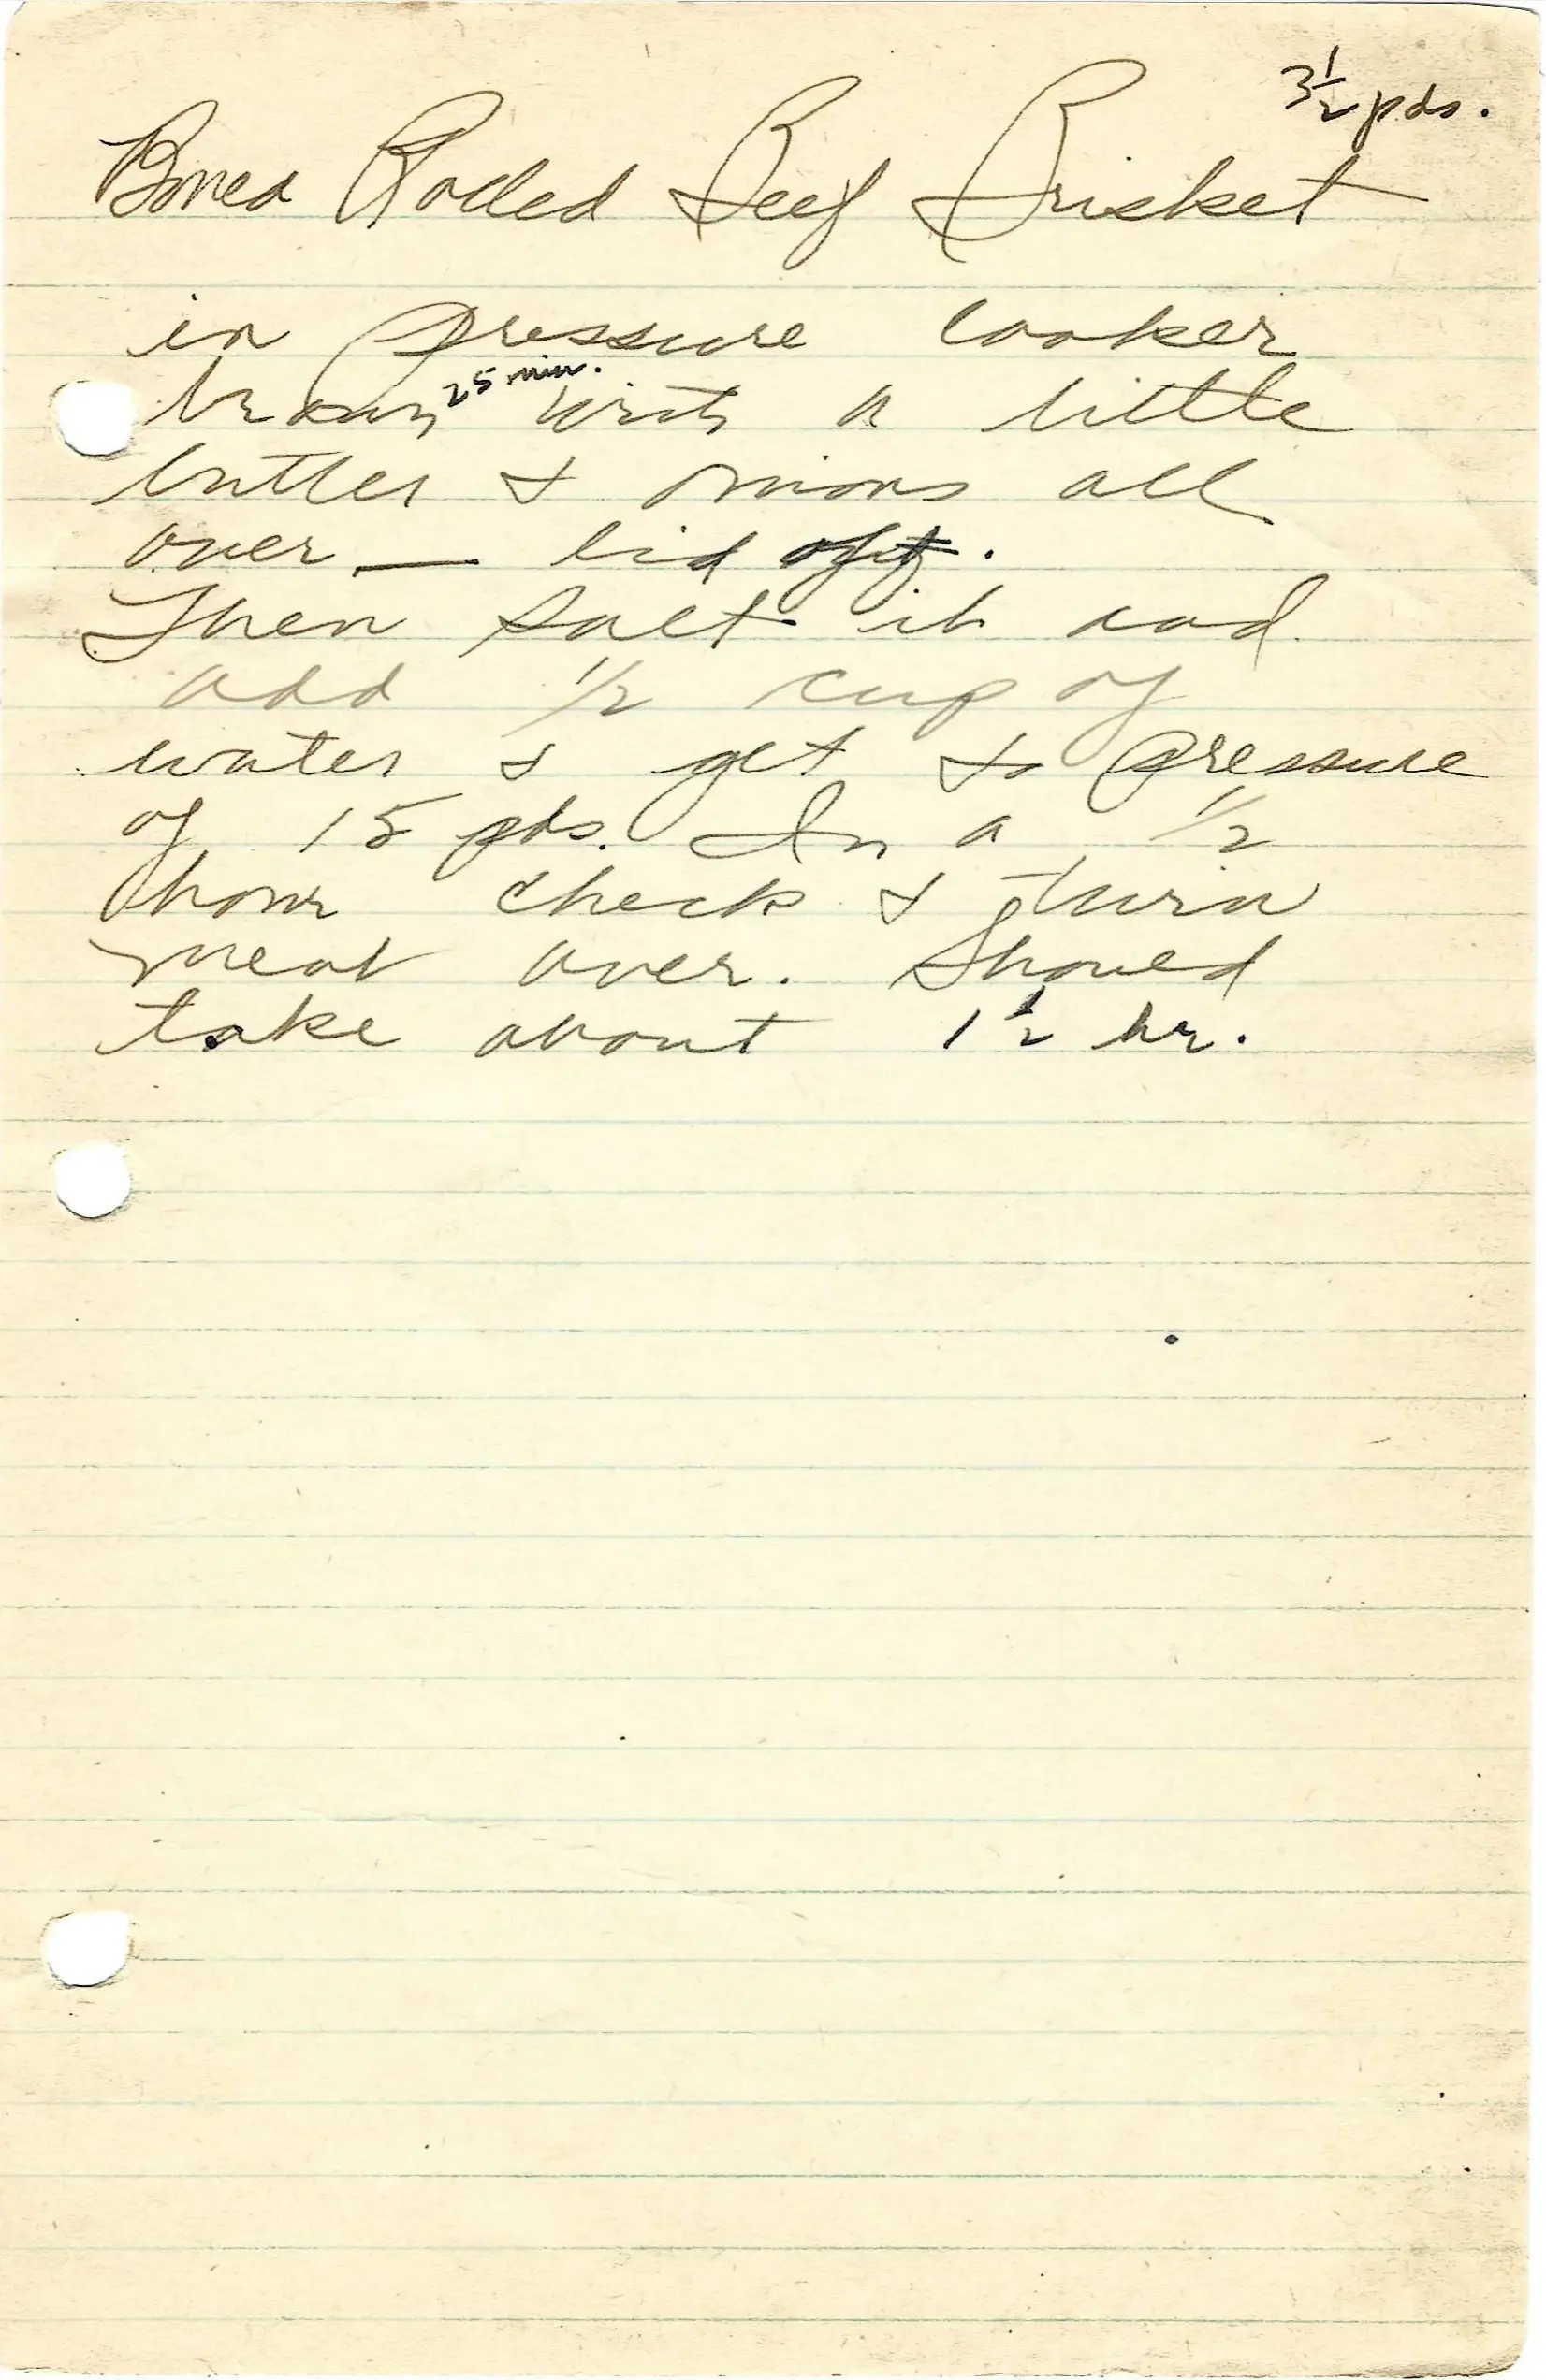 3 1/2 pds.
Boned Rolled Beef Brisket
in pressure cooker
brown 25 min. with a little
butter & onions all
over — lid off.
Then salt it and
add 1/2 cup of
water & get to pressure
of 15 pds. In a 1/2
hour check & turn
meat over. Should
take about 1 1/2 hr.